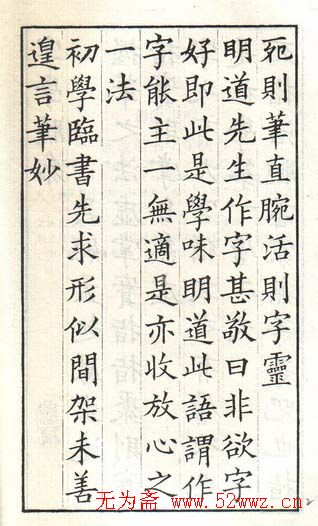 死則筆直腕活則字靈
明道先生作字甚敬曰非欲字
好即此是學味明道此語謂作
字能主一無適是亦收放心之
一法
初學臨書先求形似間架未善
遑言筆妙
无为斋 www.52wwz.cn